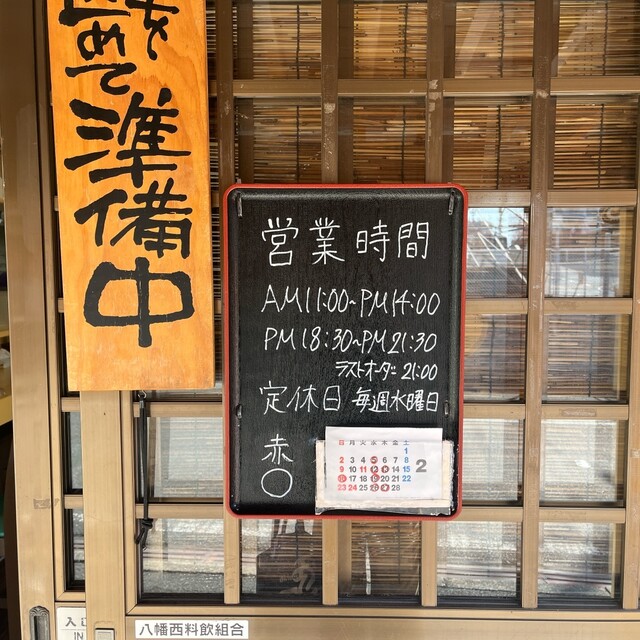 めて準備中
営業時間
AM11:00~PM14:00
PM18:30~PM21:30
ラストオーダー 21:00
定休日 毎週水曜日
赤〇
2
日 月 火 水 木 金 土
1
2 3 4 5 6 7 8
9 10 11 12 13 14 15
16 17 18 19 20 21 22
23 24 25 26 27 28
入口
IN
八幡西料飲組合